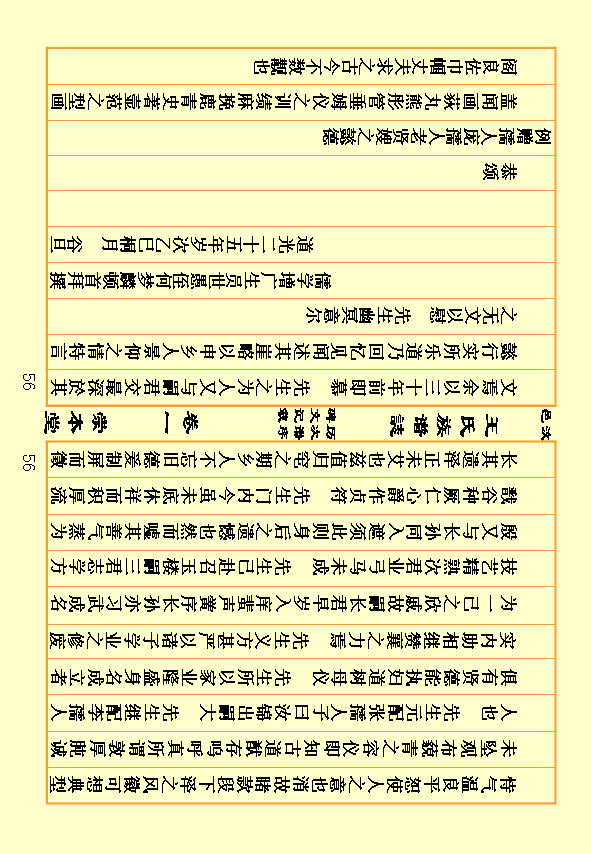 恃气温良平恕使人之意也消故睹款段下泽之风徽可想典型
未坠观布之青容仪即知古道猷存呜呼真所谓敦厚肫诚
人也　先生元配张孺人子曰汝锦出嗣大　先生继配李孺人
俱有贤德能执妇道树母仪　先生所以家业隆盛身名成立者
实内助相继襄赞之力焉　先生义方甚严以诸子学业之修废
为一己之欣戚故嗣长君早岁入庠蜚声黉序长孙亦习武成名
技艺精熟次君业弓马未成　先生已赴召玉楼嗣三君志学方
殷又与长孙同入邀须此则身后之遗憾也然而嘘其善气蒸为
戬谷种厥仁心爵作贞符　先生门内今虽未底休祥而积厚流
长其遗泽正未艾也又兹值归窆之期乡人不忘旧德爰制屏而徵
56
王氏族谱誌
历次谱序
碑文记载
卷一
崇本堂
56
文焉余以三十年前即慕　先生之为人又与嗣君交最深於其
懿行实所乐道乃回忆见闻述其崖略以申乡人景仰之情之特言
之无文以慰　先生幽冥意尔
儒学增广生员世愚侄何梦麟顿首拜撰
道光二十五年岁次乙巳桐月　谷旦
恭颂
例赠孺人庞孺人老贤嫂之懿德
盖闻画荻丸熊彤管垂姆仪之训练麻挽鹿青史著壸范之型
良佐巾帼丈夫求之古今不数觏也